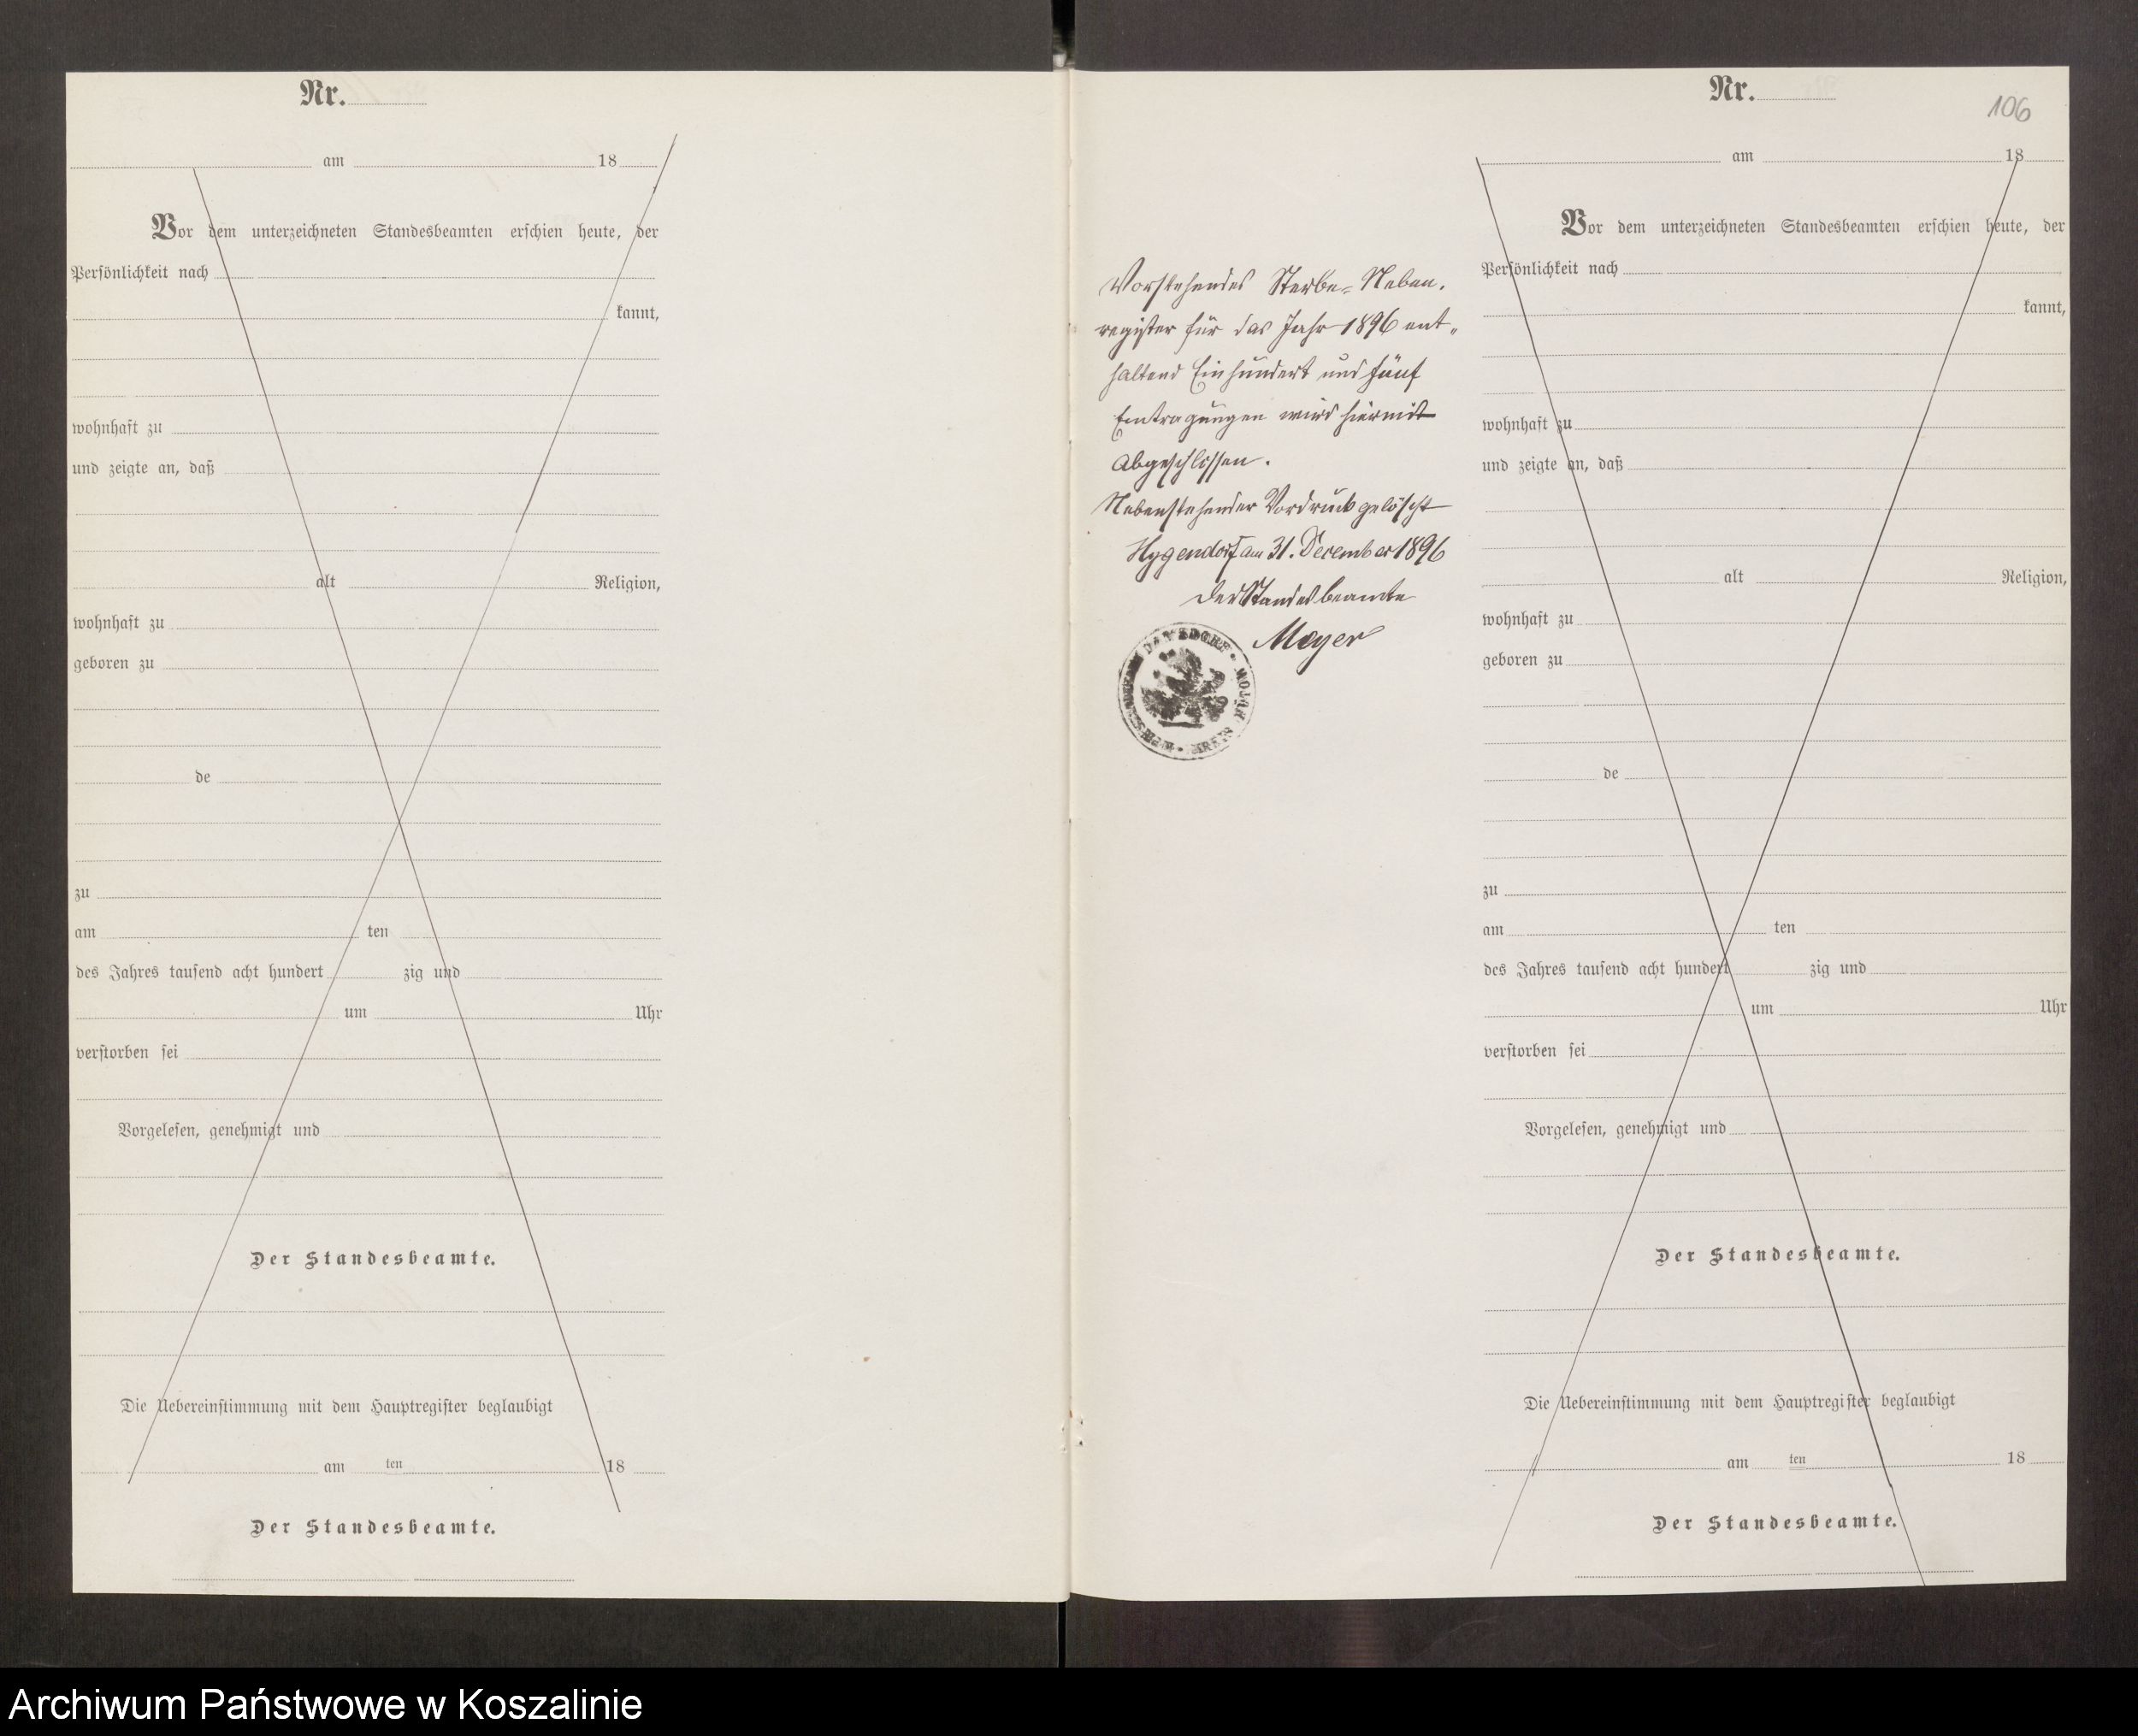 Nr.
am 18
Vor dem unterzeichneten Standesbeamten erschien heute, der
Persönlichkeit nach
kannt,
wohnhaft zu
und zeigte an, daß
alt Religion,
wohnhaft zu
geboren zu
de
zu
am ten
des Jahres tausend acht hundert zig und
um Uhr
verstorben sei
Vorgelesen, genehmigt und
Der Standesbeamte.
Die Uebereinstimmung mit dem Hauptregister beglaubigt
am ten 18
Der Standesbeamte.
106
Vorstehendes Sterbe-Neben-
register für das Jahr 1896 ent-
haltend Einhundert und fünf
Eintragungen wird hiermit
abgeschlossen.
Nebenstehender Vordruck gelöscht
am 31. December 1896
Der Standesbeamte
Meyer
Nr.
am 18
Vor dem unterzeichneten Standesbeamten erschien heute, der
Persönlichkeit nach
kannt,
wohnhaft zu
und zeigte an, daß
alt Religion,
wohnhaft zu
geboren zu
de
zu
am ten
des Jahres tausend acht hundert zig und
um Uhr
verstorben sei
Vorgelesen, genehmigt und
Der Standesbeamte.
Die Uebereinstimmung mit dem Hauptregister beglaubigt
am ten 18
Der Standesbeamte.
Archiwum Państwowe w Koszalinie